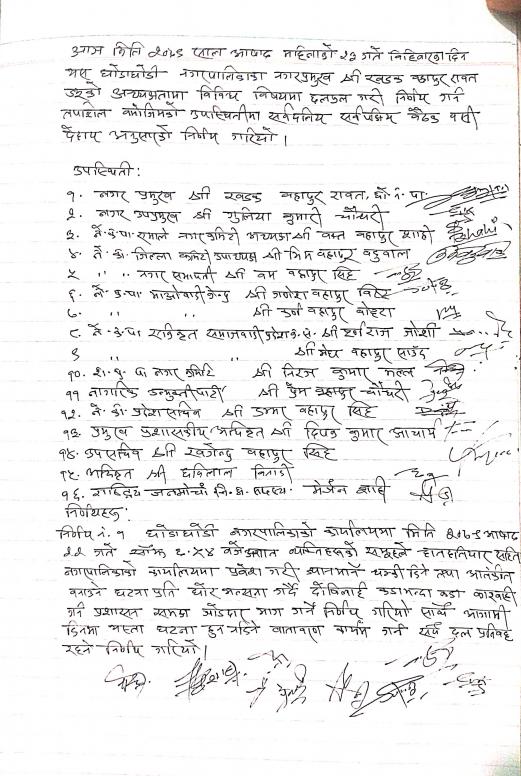 आज मिति २०७९ साल आषाढ महिनाको २३ गते बिहिवारका दिन
यस घोडाघोडी नगरपालिकाका नगरप्रमुख श्री खडक बहादुर रावत
ज्यूको अध्यक्षतामा विविध विषयमा छलफल गरी निर्णय गर्न
तपशिल बमोजिमको उपस्थितीमा सर्वदलिय सर्वपक्षिय बैठक बसी
देहाय अनुसारको निर्णय गरियो।
उपस्थिती:
१. नगर प्रमुख श्री खडक बहादुर रावत, घो. न. पा.
२. नगर उपप्रमुख श्री गुलिया कुमारी चौधरी
३. ने. क. पा. एमाले नगर कमिटी अध्यक्ष श्री वस्त बहादुर शाही
४. ने. का. जिल्ला कमिटी उपाध्यक्ष श्री भिम बहादुर बडुवाल
५ " " नगर सभापती श्री बम बहादुर सिंह
६. ने. क. पा. माओवादी केन्द्र श्री गणेश बहादुर विष्ट
७. " " श्री दुर्गा बहादुर बोहरा
८. ने. क. पा. एकिकृत समाजवादी प्रदेश क. स. श्री हर्क राज जोशी
९ " " श्री मेघ बहादुर साउँद
१०. रा. प्र. पा. नगर कमिटि श्री निरज कुमार मल्ल
११ नागरिक उन्मुक्ती पार्टी श्री प्रेम बहादुर चौधरी
१२. ने. का. प्रदेश सचिव श्री डम्मर बहादुर सिंह
१३. प्रमुख प्रशासकीय अधिकृत श्री दिपक कुमार आचार्य
१४. उपसचिव श्री खगेन्द्र बहादुर सिंह
१५. अधिकृत श्री छविलाल गिरी
१६. राष्ट्रिय जनमोर्चा जि. क. सदस्य. मेजन शाही
निर्णयहरु:
निर्णय नं. १ घोडाघोडी नगरपालिकाको कार्यालयमा मिति २०७९ आषाढ
२२ गते साँझ ६:५४ बजे अज्ञात व्यक्तिहरुको समूहले हातहतियार सहित
नगरपालिकाको कार्यालयमा प्रवेश गरी ज्यानमार्ने धम्की दिने तथा आतंकीत
बनाउने घटना प्रति घोर भर्त्सना गर्दै दोषिलाई कडा भन्दा कडा कारवाही
गर्न प्रशासन समक्ष जोडदार माग गर्ने निर्णय गरियो साथै आगामी
दिनमा यस्ता घटना हुन नदिने वातावरण कायम गर्न सबै दल प्रतिवद्ध
रहने निर्णय गरियो।